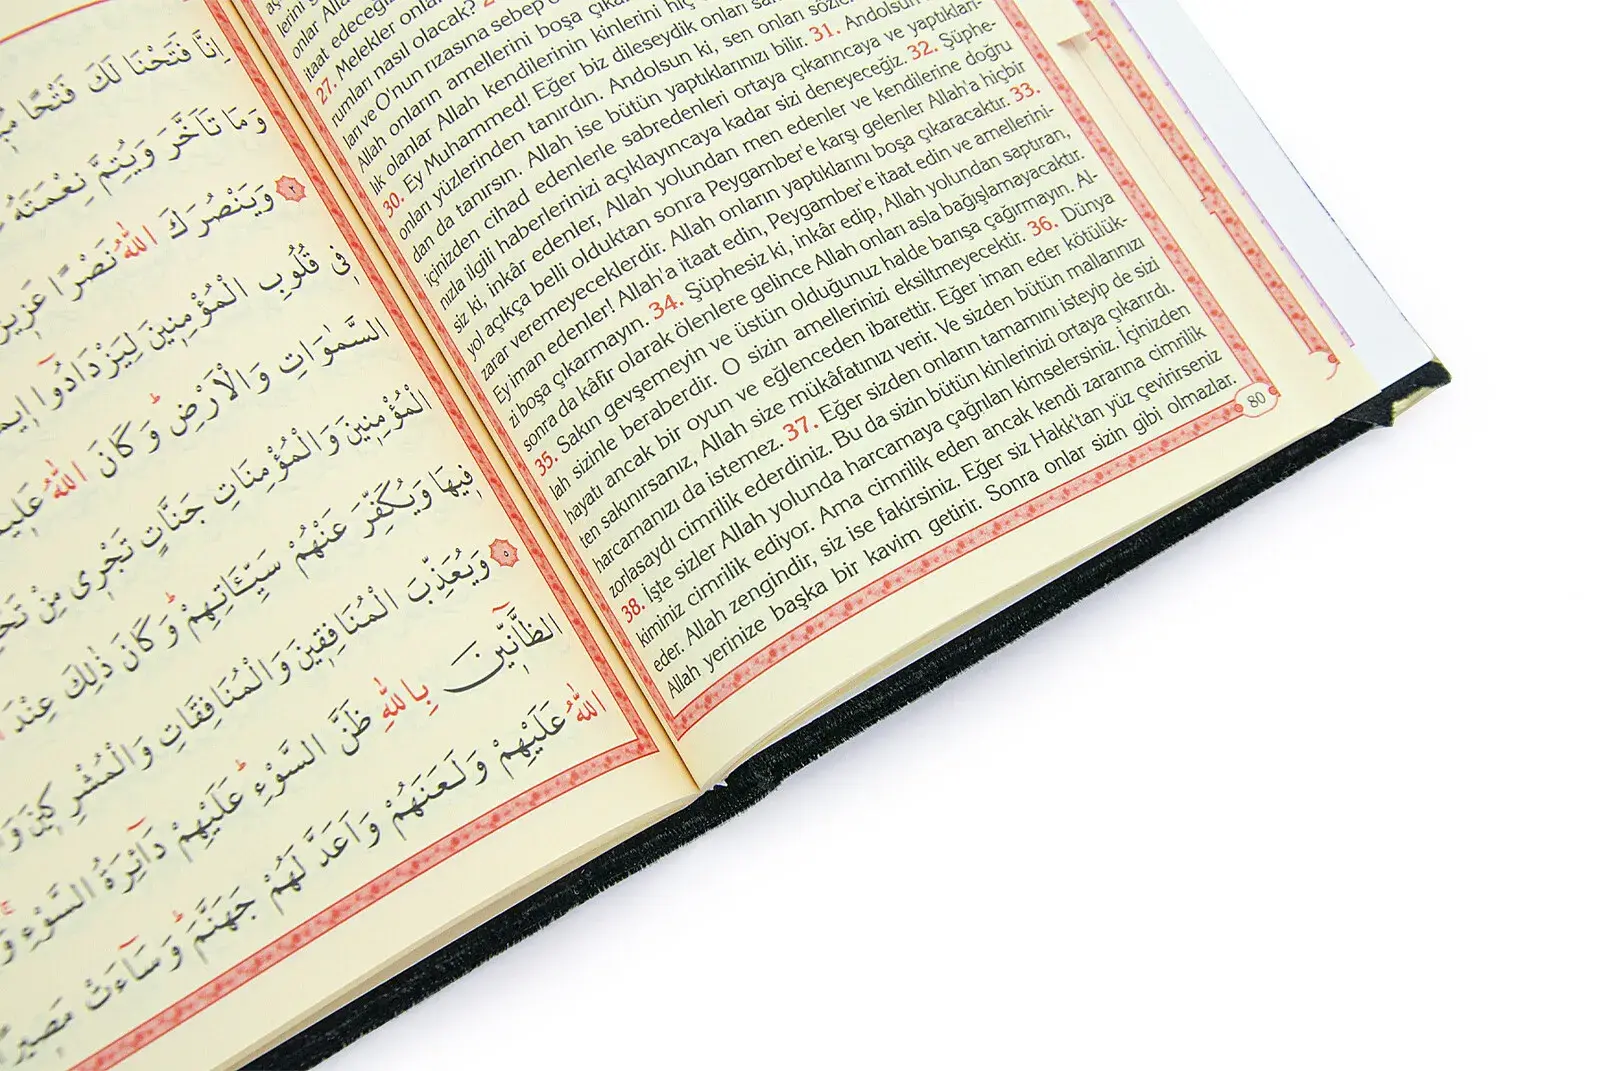 اِنَّا فَتَحْنَا لَكَ فَتْحًا
وَمَا تَاَخَّرَ وَيُتِمَّ نِعْمَتَهُ
٢ وَيَنْصُرَكَ اللّٰهُ نَصْرًا
فٖى قُلُوبِ الْمُؤْمِنٖينَ لِيَزْدَادُٓوا
السَّمٰوَاتِ وَالْاَرْضِؕ وَكَانَ اللّٰهُ
الْمُؤْمِنٖينَ وَالْمُؤْمِنَاتِ جَنَّاتٍ تَجْرٖى مِنْ
فٖيهَا وَيُكَفِّرَ عَنْهُمْ سَيِّـَٔاتِهِمْؕ وَكَانَ ذٰلِكَ عِنْدَ
٥ وَيُعَذِّبَ الْمُنَافِقٖينَ وَالْمُنَافِقَاتِ وَالْمُشْرِكٖينَ
الظَّٓانّٖينَ بِاللّٰهِ ظَنَّ السَّوْءِؕ عَلَيْهِمْ دَٓائِرَةُ السَّوْءِۚ
اللّٰهُ عَلَيْهِمْ وَلَعَنَهُمْ وَاَعَدَّ لَهُمْ جَهَنَّمَؕ وَسَٓاءَتْ مَصٖيرًا
onlar Alla
itaat edeceğiz
27. Melekler onlar
rumları nasıl olacak?
ları ve O'nun rızasına sebep
Allah onların amellerini boşa
lık olanlar Allah kendilerinin kinlerini
30. Ey Muhammed! Eğer biz dileseydik onları
onları yüzlerinden tanırdın. Andolsun ki, sen onları
dan da tanırsın. Allah ise bütün yaptıklarınızı bilir. 31. Andolsun
içinizden cihad edenlerle sabredenleri ortaya çıkarıncaya ve yaptıkları-
nızla ilgili haberlerinizi açıklayıncaya kadar sizi deneyeceğiz. 32. Şüphe-
siz ki, inkâr edenler, Allah yolundan men edenler ve kendilerine doğru
yol açıkça belli olduktan sonra Peygamber'e karşı gelenler Allah'a hiçbir
zarar veremeyeceklerdir. Allah onların yaptıklarını boşa çıkaracaktır. 33.
Ey iman edenler! Allah'a itaat edin, Peygamber'e itaat edin ve amellerini-
zi boşa çıkarmayın. 34. Şüphesiz ki, inkâr edip, Allah yolundan saptıran,
sonra da kâfir olarak ölenlere gelince Allah onları asla bağışlamayacaktır.
35. Sakın gevşemeyin ve üstün olduğunuz halde barışa çağırmayın. Al-
lah sizinle beraberdir. O sizin amellerinizi eksiltmeyecektir. 36. Dünya
hayatı ancak bir oyun ve eğlenceden ibarettir. Eğer iman eder kötülük-
ten sakınırsanız, Allah size mükâfatınızı verir. Ve sizden bütün mallarınızı
harcamanızı da istemez. 37. Eğer sizden onların tamamını isteyip de sizi
zorlasaydı cimrilik ederdiniz. Bu da sizin bütün kinlerinizi ortaya çıkarırdı.
38. İşte sizler Allah yolunda harcamaya çağrılan kimselersiniz. İçinizden
kiminiz cimrilik ediyor. Ama cimrilik eden ancak kendi zararına cimrilik
eder. Allah zengindir, siz ise fakirsiniz. Eğer siz Hakk'tan yüz çevirirseniz
Allah yerinize başka bir kavim getirir. Sonra onlar sizin gibi olmazlar.
80